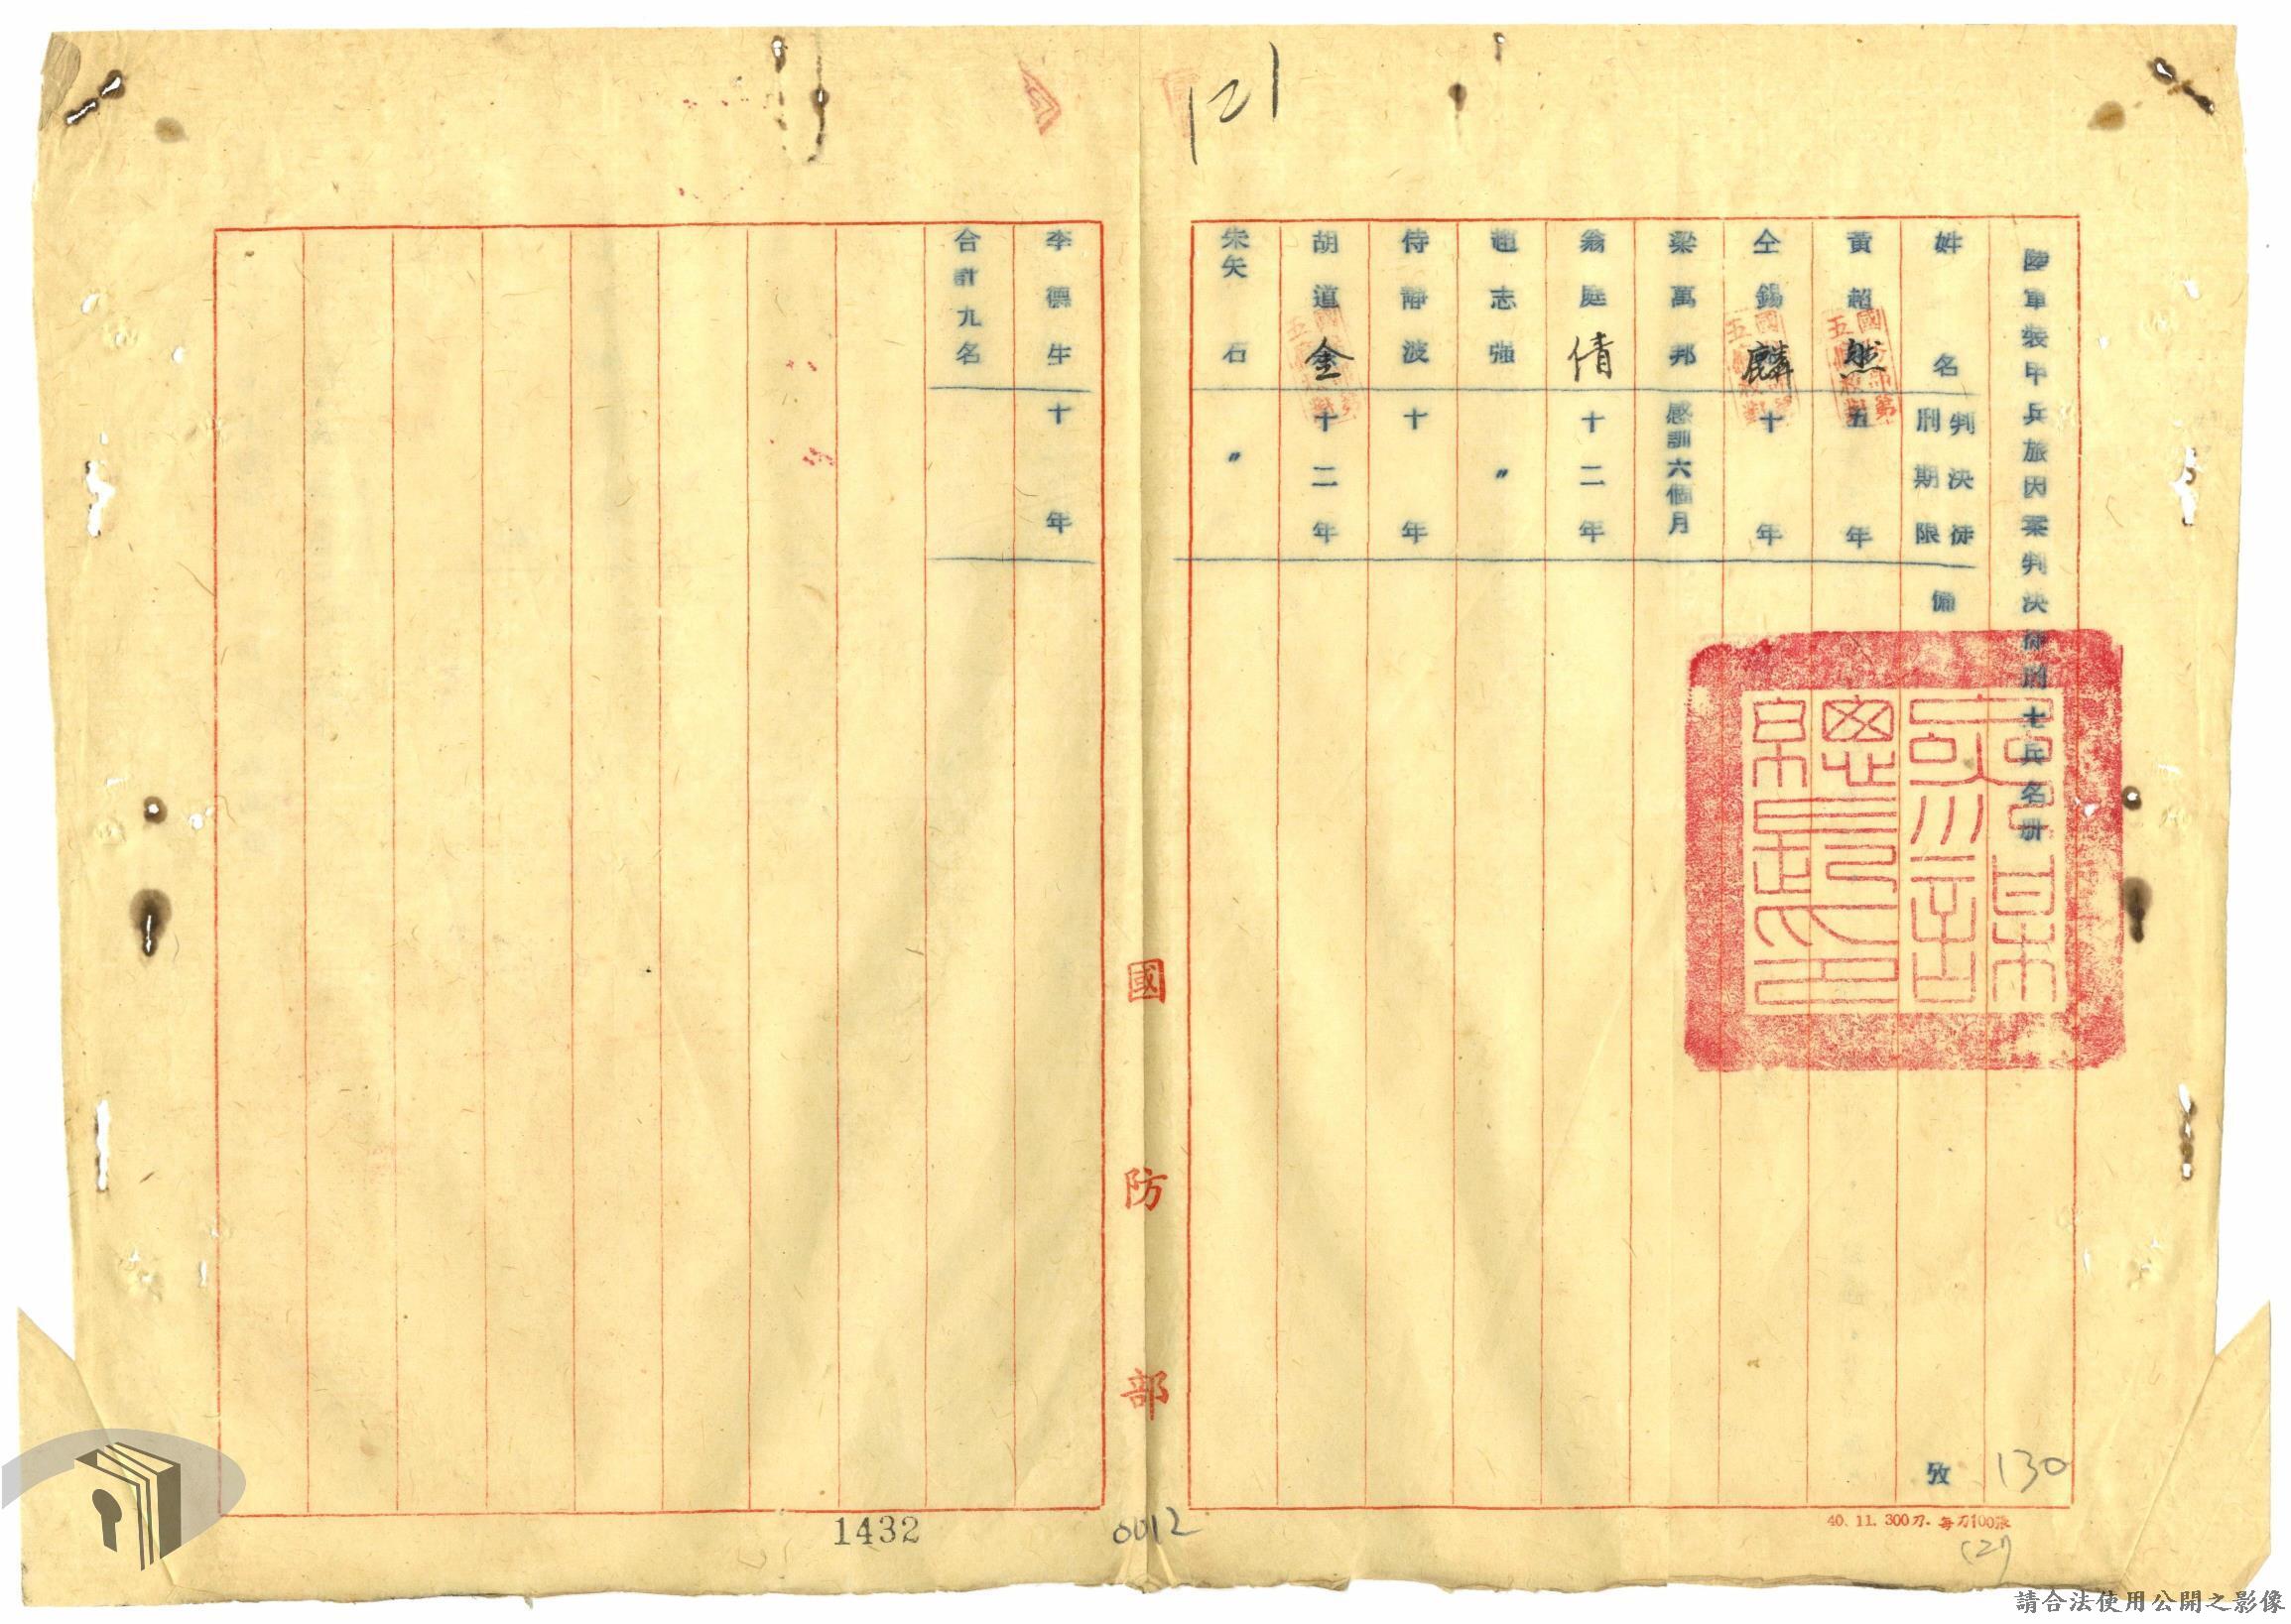 121
陸軍裝甲兵旅因案判決徒刑士兵名册
姓名
判決徒刑期限
備
攷
黃超然
五年
仝錫麟
十年
梁萬邦
感訓六個月
翁庭倩
十二年
趙志強
〃
侍靜波
十年
胡道金
十二年
朱矢石
〃
李德生
十年
合計九名
國防部
130
40.11.300刀.每刀100張
(21)
1432
0012
請合法使用公開之影像